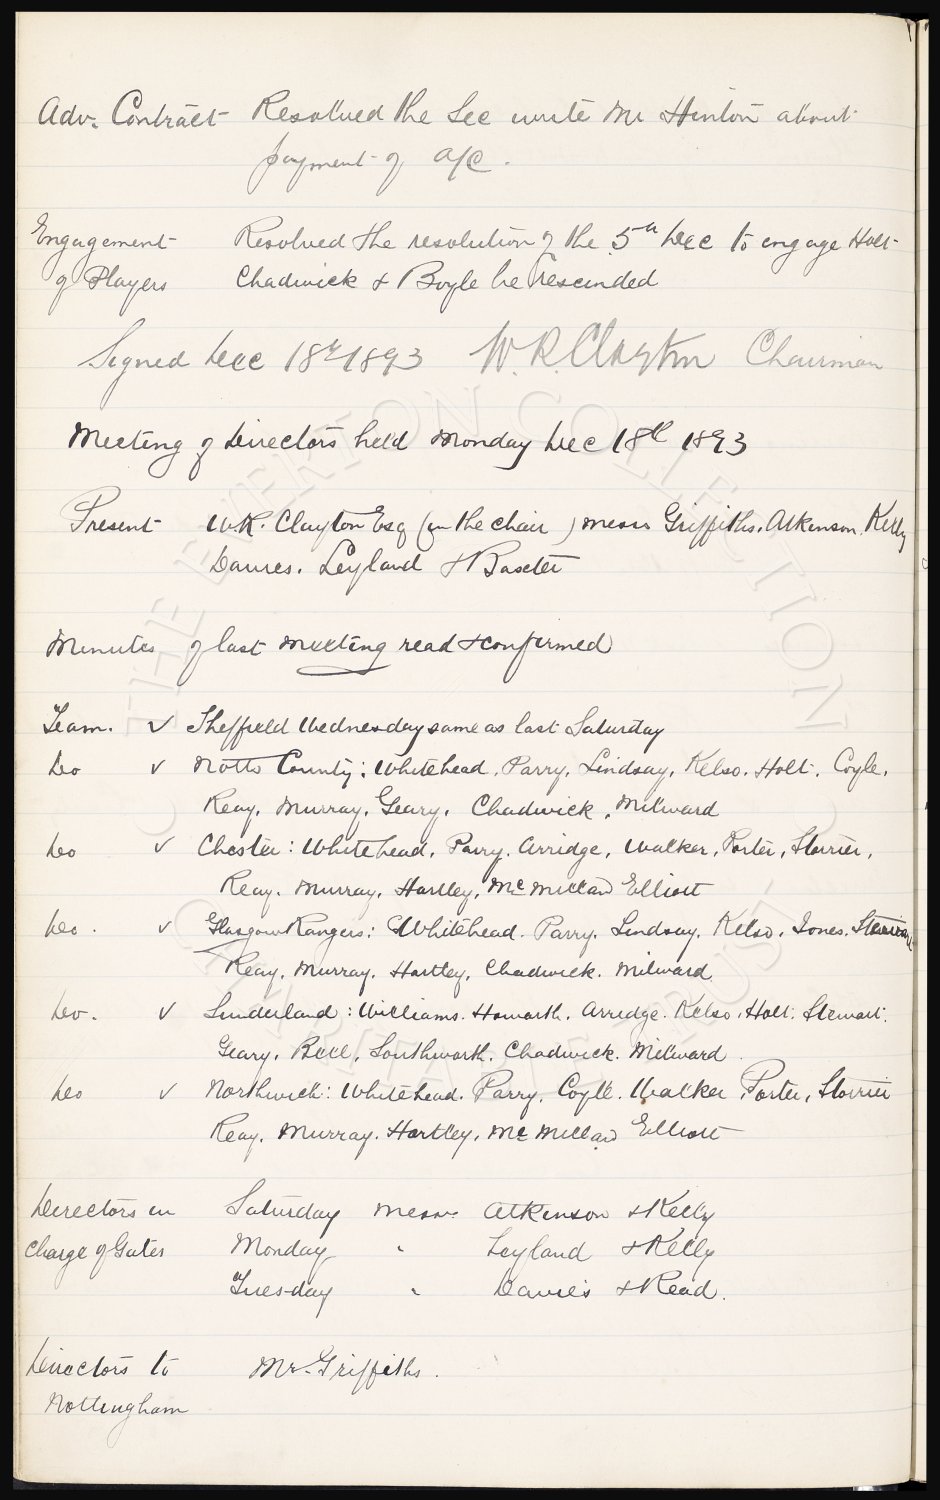 Adv. Contract Resolved the Sec write Mr Hinton about
payment of a/c.
Engagement Resolved the resolution of the 5th Dec to engage Holt
of Players Chadwick & Boyle be rescinded
Signed Dec 18th 1893 W. R. Clayton Chairman
Meeting of Directors held Monday Dec 18th 1893
Present W.R. Clayton Esq (in the chair) Messrs Griffiths. Atkinson. Kelly
Davies. Leyland & Baxter
Minutes of last meeting read & confirmed
Team. v Sheffield Wednesday same as last Saturday
Do v Notts County: Whitehead. Parry. Lindsay. Kelso. Holt. Coyle.
Reay. Murray. Geary. Chadwick. Milward
Do v Chester: Whitehead. Parry. Arridge. Walker. Porter. Storrier.
Reay. Murray. Hartley. McMillan Elliott
Do. v Glasgow Rangers: Whitehead. Parry. Lindsay. Kelso. Jones. Stewart
Reay. Murray. Hartley. Chadwick. Milward
Do. v Sunderland: Williams. Howarth. Arridge. Kelso. Holt. Stewart.
Geary. Bell. Southworth. Chadwick. Milward
Do v Northwich: Whitehead. Parry. Coyle. Walker. Porter. Storrier
Reay. Murray. Hartley. McMillan Elliott
Directors in Saturday Messrs Atkinson & Kelly
Charge of Gates Monday " Leyland & Kelly
Tuesday " Davies & Read.
Directors to Mr. Griffiths.
Nottingham
THE EVERTON COLLECTION
CHARITABLE TRUST